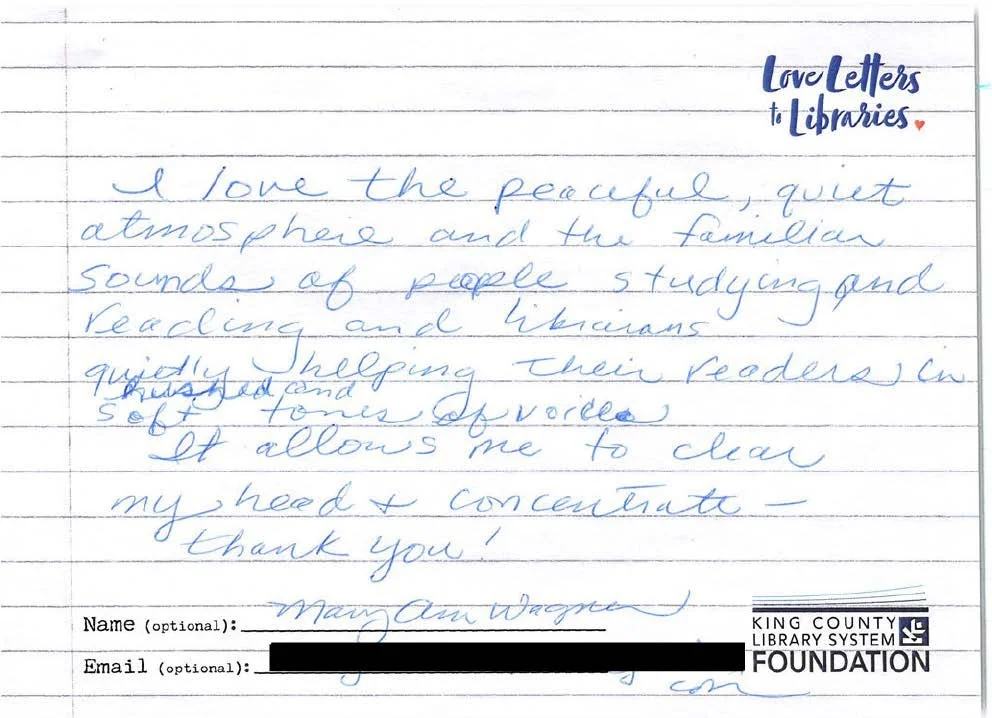 Love Letters
to Libraries
I love the peaceful, quiet
atmosphere and the familiar
sounds of people studying and
reading and librarians
quietly helping their readers in
hushed and
soft tones of voice
It allows me to clear
my head + concentrate —
thank you!
Name (optional): Mary Ann Wagner
KING COUNTY
LIBRARY SYSTEM
FOUNDATION
Email (optional):
com